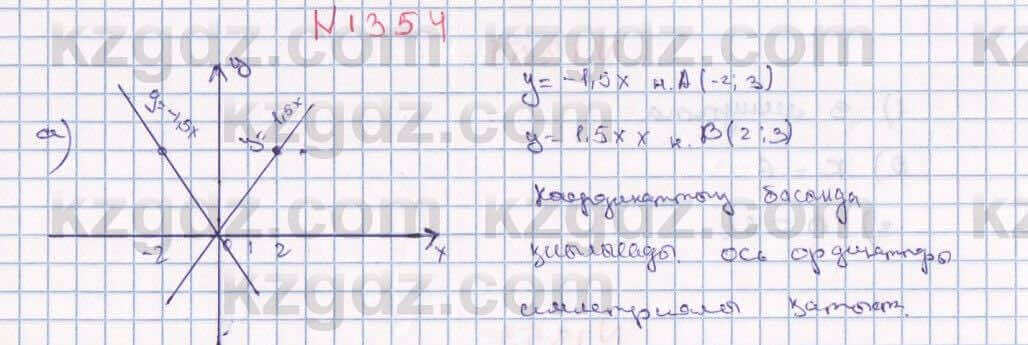 N1354
а)
y
y=-1,5x
y=1,5x
-2 0 1 2 x
y=-1,5x н.A(-2; 3)
y=1,5x x н.B(2; 3)
Координаттың басында
қиылысады. ось ординаттры
симметриалы қатыст.
kzgdz.com